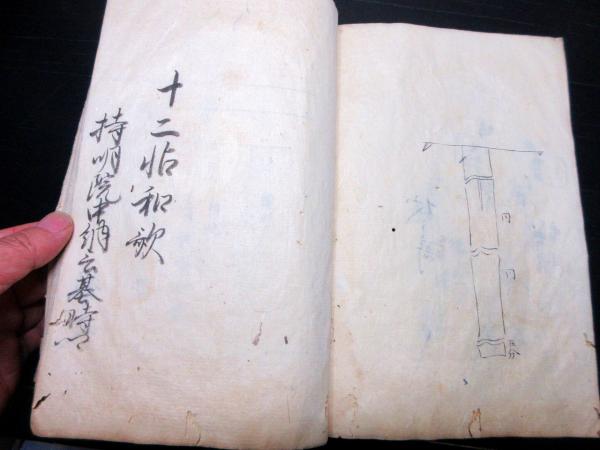 十二帖和歌
持明院中納言基時
五分